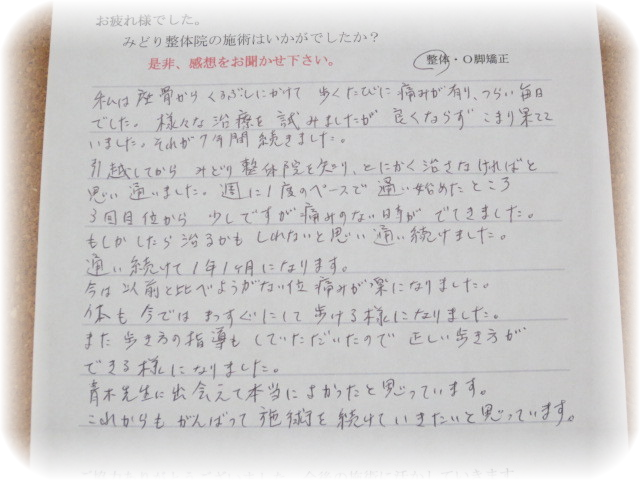 お疲れ様でした。
みどり整体院の施術はいかがでしたか？
是非、感想をお聞かせ下さい。
整体・O脚矯正
私は座骨からくるぶしにかけて 歩くたびに痛みが有り、つらい毎日
でした。様々な治療を試みましたが 良くならず こまり果てて
いました。それが7年間続きました。
引越してから みどり整体院を知り、とにかく治さなければと
思い通いました。週に1度のペースで通い始めたところ
3回目位から 少しですが痛みのない日が でてきました。
もしかしたら治るかもしれないと思い通い続けました。
通い続けて1年1ヶ月になります。
今は以前と比べようがない位痛みが楽になりました。
体も今ではまっすぐにして歩ける様になりました。
また歩き方の指導もしていただいたので 正しい歩き方が
できる様になりました。
青木先生に出会えて本当によかったと思っています。
これからもがんばって施術を続けていきたいと思っています。